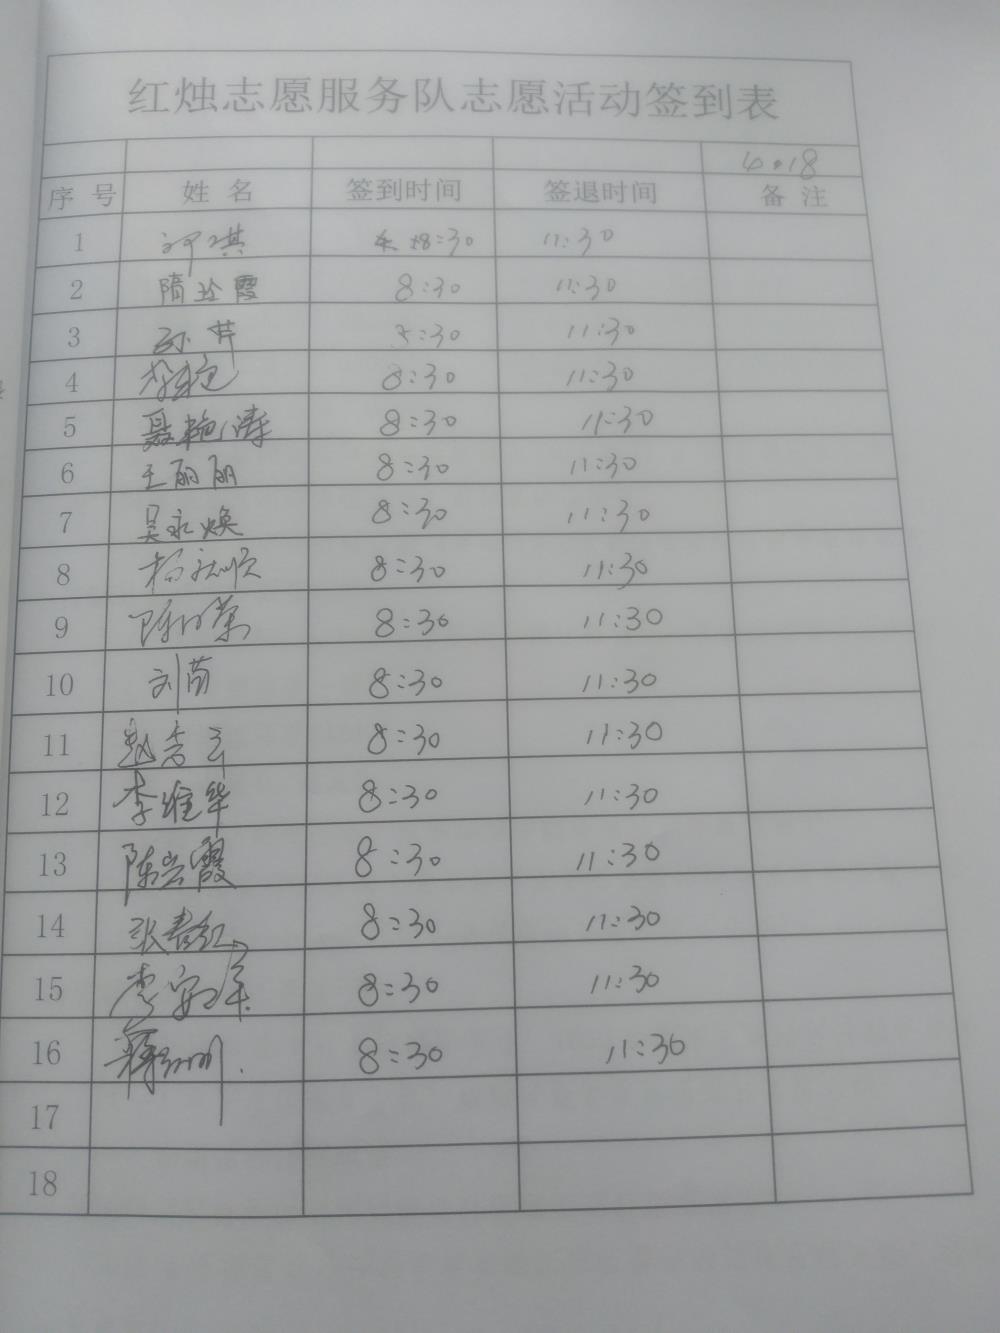 红烛志愿服务队志愿活动签到表
4.18
序号 姓名 签到时间 签退时间 备注
1 8:30 11:30
2 隋玲霞 8:30 11:30
3 :30 11:30
4 8:30 11:30
5 聂艳涛 8:30 11:30
6 王丽丽 8:30 11:30
7 吴永焕 8:30 11:30
8 8:30 11:30
9 8:30 11:30
10 刘茵 8:30 11:30
11 赵秀云 8:30 11:30
12 李维华 8:30 11:30
13 陈云霞 8:30 11:30
14 张春红 8:30 11:30
15 8:30 11:30
16 8:30 11:30
17
18